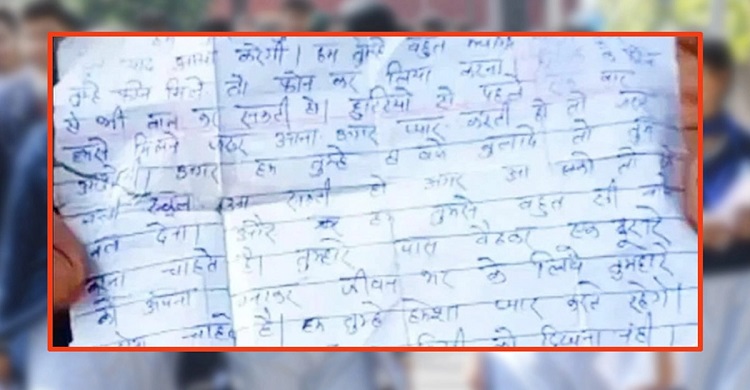 याद आया करेगी। हम तुम्हे बहुत
तुम्हे फोन मिले तो फोन कर लिया करना।
से भी बात कर सकती हो। छुटियो से पहले बार
हमसे मिलने जरूर आना अगर प्यार करती हो तो जरूर
अगर हम तुम्हे 8 बजे बुलाये तो तुम
स्कूल आ सकती हो अगर आ सको तो
बता देना। और हम तुमसे बहुत सी
करना चाहते है। तुम्हारे पास बैठकर एक दूसरे
को अपना बनाकर जीवन भर के लिये तुम्हारे
चाहते है। हम तुम्हे हमेशा प्यार करते रहेगे।
को दिखाना नही।